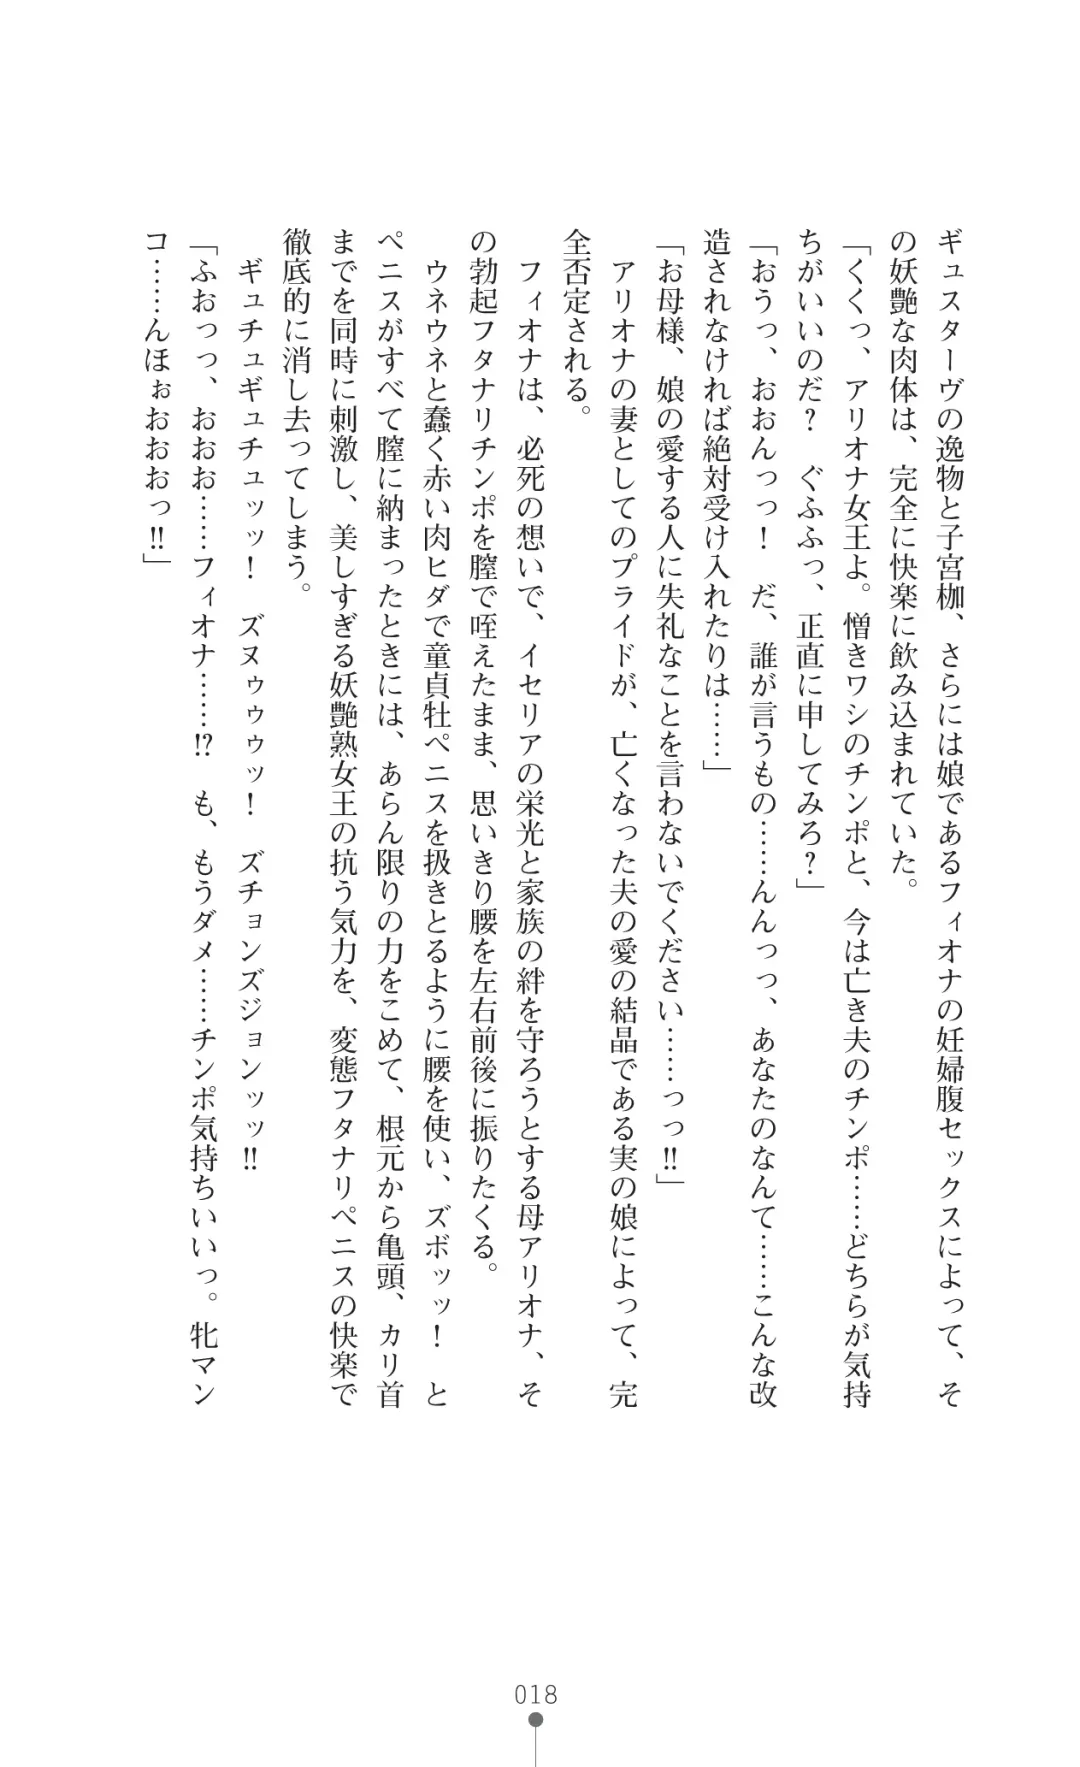 ギュスターヴの逸物と子宮枷、さらには娘であるフィオナの妊婦腹セックスによって、そ
の妖艶な肉体は、完全に快楽に飲み込まれていた。
「くくっ、アリオナ女王よ。憎きワシのチンポと、今は亡き夫のチンポ……どちらが気持
ちがいいのだ？　ぐふふっ、正直に申してみろ？」
「おうっ、おおんっっ！　だ、誰が言うもの……んんっっ、あなたのなんて……こんな改
造されなければ絶対受け入れたりは……」
「お母様、娘の愛する人に失礼なことを言わないでください……っっ!!」
　アリオナの妻としてのプライドが、亡くなった夫の愛の結晶である実の娘によって、完
全否定される。
　フィオナは、必死の想いで、イセリアの栄光と家族の絆を守ろうとする母アリオナ、そ
の勃起フタナリチンポを膣で咥えたまま、思いきり腰を左右前後に振りたくる。
　ウネウネと蠢く赤い肉ヒダで童貞牡ペニスを扱きとるように腰を使い、ズボッッ！　と
ペニスがすべて膣に納まったときには、あらん限りの力をこめて、根元から亀頭、カリ首
までを同時に刺激し、美しすぎる妖艶熟女王の抗う気力を、変態フタナリペニスの快楽で
徹底的に消し去ってしまう。
　ギュチュギュチュッッ！　ズヌゥゥゥッ！　ズチョンズジョンッッ!!
「ふおっっ、おおお……フィオナ……!?　も、もうダメ……チンポ気持ちいいっ。牝マン
コ……んほぉおおおっ!!」
018